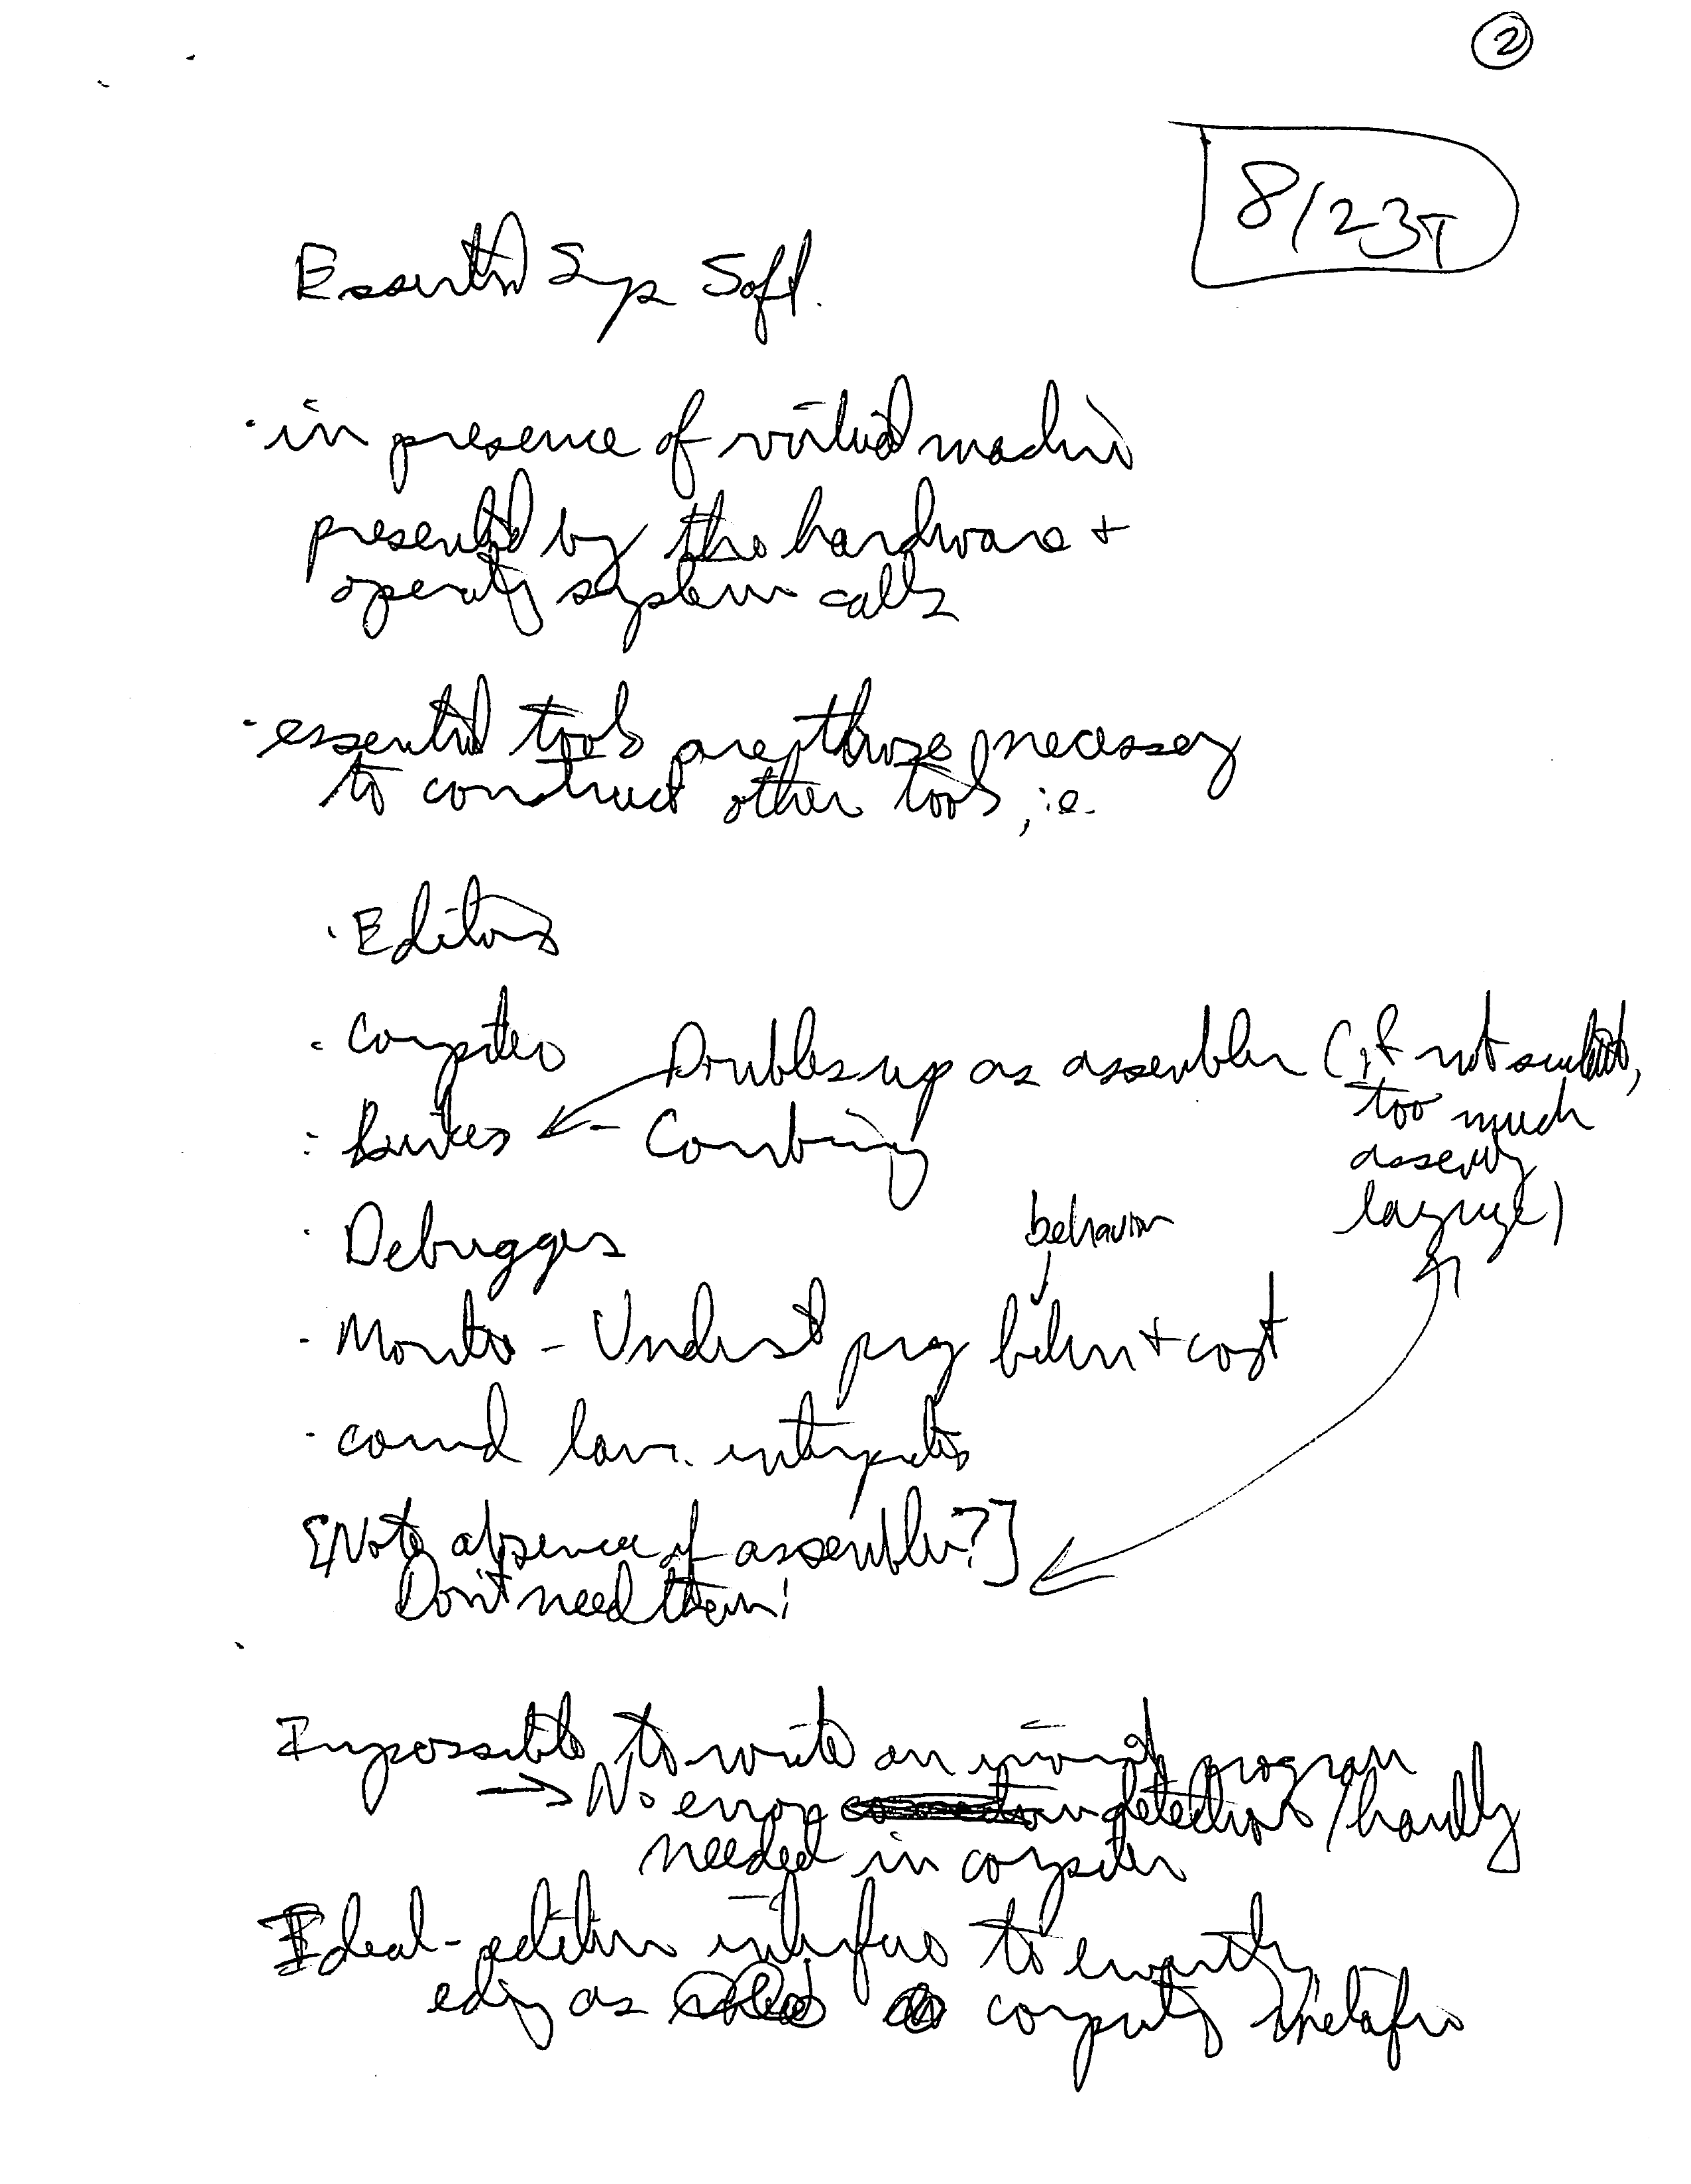 2
8/23T
Essential Sys Soft.
· in presence of virtual machine
presented by the hardware +
operating system calls
· essential tools are those necessary
to construct other tools, i.e.
· Editors
· Compilers
Doubles up as assembler (if not
too much
assembly
language)
· Linkers ← - Combining
· Debuggers
behavior
· Monitor - Underst prog behav + cost
· comnd lang. interpreters
[Note absence of assembler?]
Don't need them!
Impossible to write an program
→ No error detection / hardly
needed in compiler
Ideal - editor interface to everything
editing as computing metaphor